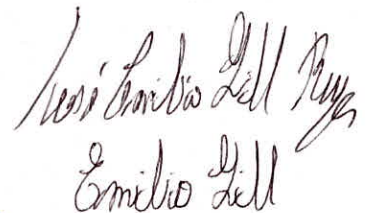 José Emilio Gill Ruy
Emilio Gill